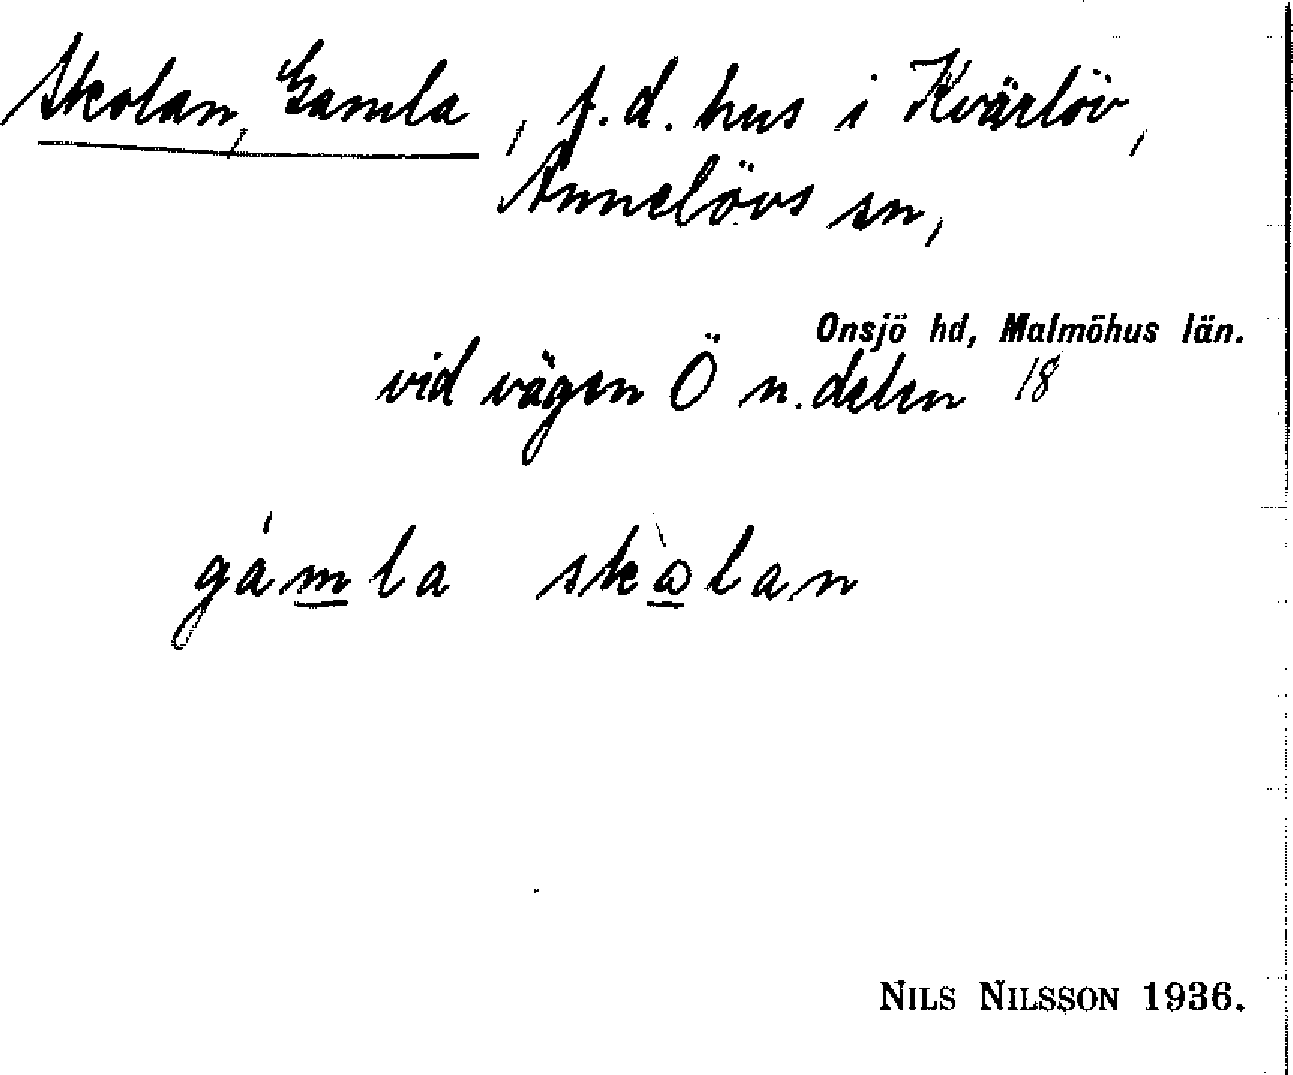 Skolan, Gamla, f.d. hus i Kvärlöv,
Annelövs sn,
Onsjö hd, Malmöhus län.
vid vägen Ö n. delen 18
gámla skòlan
NILS NILSSON 1936.